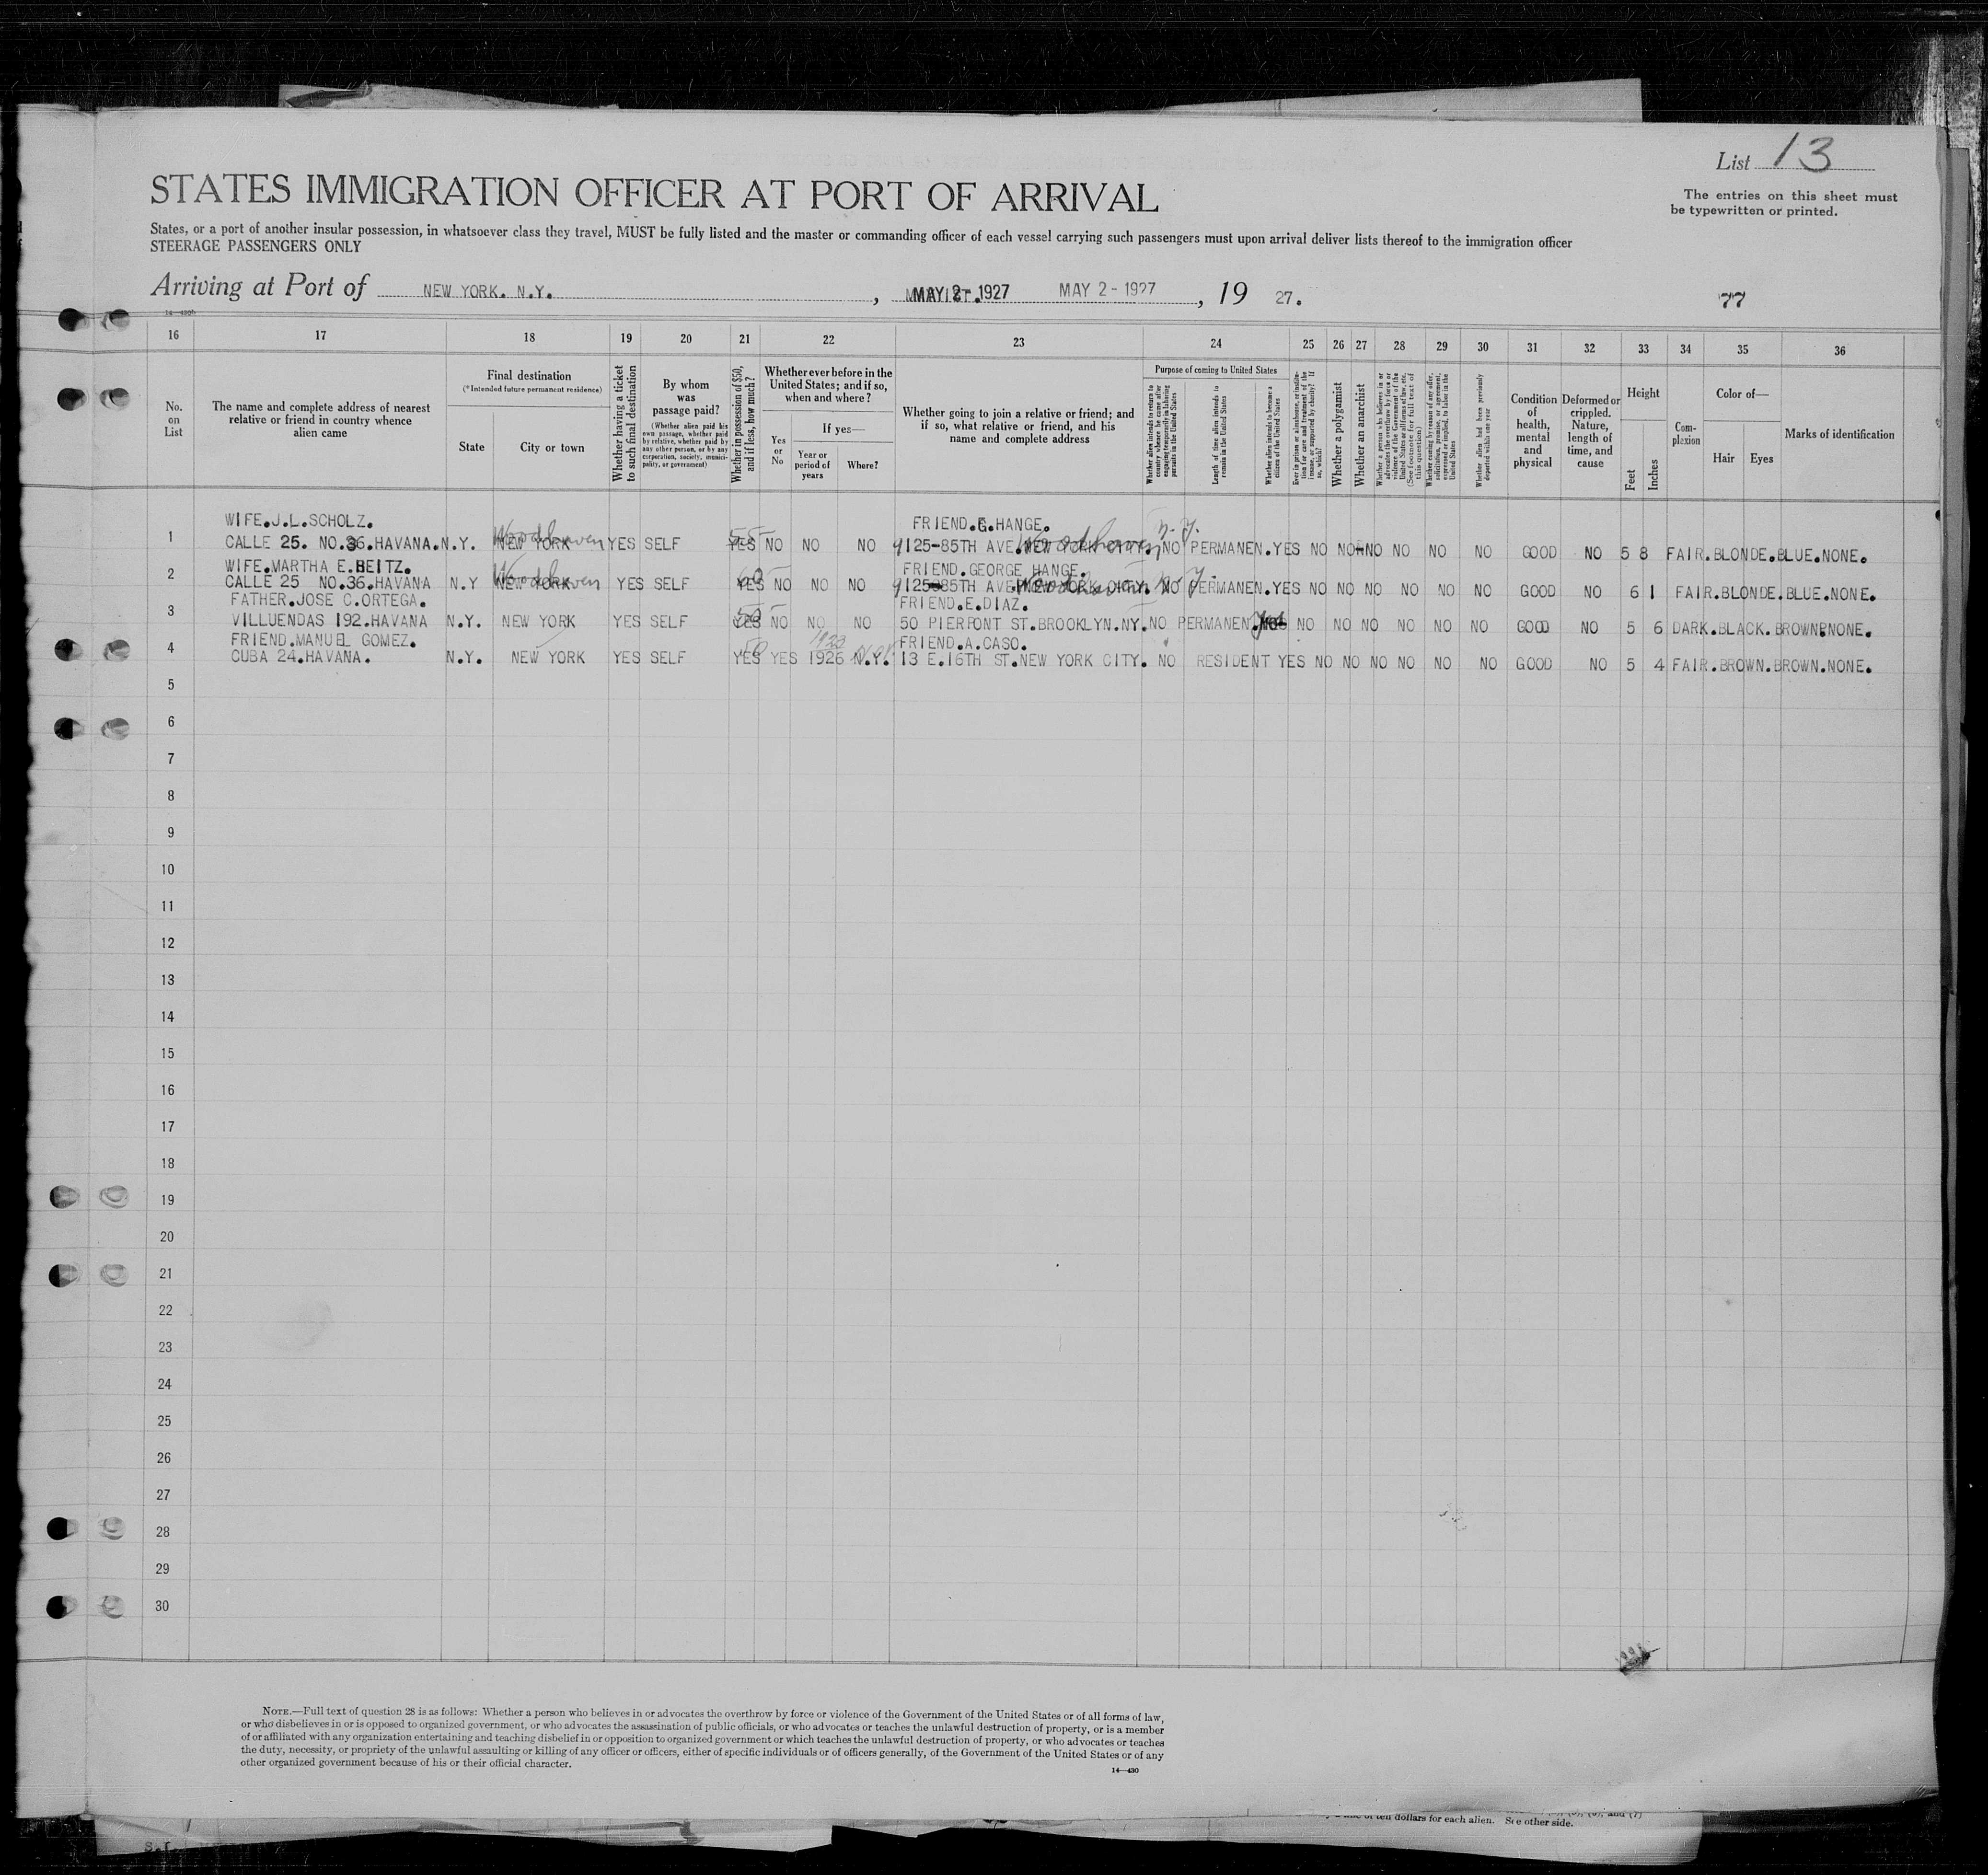 List 13
STATES IMMIGRATION OFFICER AT PORT OF ARRIVAL
The entries on this sheet must
be typewritten or printed.
States, or a port of another insular possession, in whatsoever class they travel, MUST be fully listed and the master or commanding officer of each vessel carrying such passengers must upon arrival deliver lists thereof to the immigration officer
STEERAGE PASSENGERS ONLY
Arriving at Port of NEW YORK. N.Y. , MAY 2- 1927 MAY 2- 1927 , 19 27.
77
16 17 18 19 20 21 22 23 24 25 26 27 28 29 30 31 32 33 34 35 36
No. on List
The name and complete address of nearest relative or friend in country whence alien came
Final destination
(*Intended future permanent residence)
State
City or town
Whether having a ticket to such final destination
By whom was passage paid?
(Whether alien paid his own passage, whether paid by relative, whether paid by any other person, or by any corporation, society, municipality, or government)
Whether in possession of $50, and if less, how much?
Whether ever before in the United States; and if so, when and where?
Yes or No
If yes—
Year or period of years
Where?
Whether going to join a relative or friend; and if so, what relative or friend, and his name and complete address
Purpose of coming to United States
Whether alien intends to return to country whence he came after engaging temporarily in laboring pursuits in the United States
Length of time alien intends to remain in the United States
Whether alien intends to become a citizen of the United States
Ever in prison or almshouse, or institution for care and treatment of the insane, or supported by charity? If so, which?
Whether a polygamist
Whether an anarchist
Whether a person who believes in or advocates the overthrow by force or violence of the Government of the United States or all forms of law, etc. (See footnote for full text of this question)
Whether coming by reason of any offer, solicitation, promise, or agreement, expressed or implied, to labor in the United States
Whether alien had been previously deported within one year
Condition of health, mental and physical
Deformed or crippled. Nature, length of time, and cause
Height
Feet
Inches
Complexion
Color of—
Hair Eyes
Marks of identification
WIFE.J.L.SCHOLZ. FRIEND.G.HANGE.
1 CALLE 25. NO.36.HAVANA.N.Y. NEW YORK Woodhaven YES SELF YES 55 NO NO NO 9125-85TH AVE. Woodhaven N.Y. NO PERMANEN.YES NO NO NO NO NO NO GOOD NO 5 8 FAIR.BLONDE.BLUE.NONE.
WIFE.MARTHA E.BEITZ. FRIEND.GEORGE HANGE.
2 CALLE 25 NO.36.HAVANA N.Y NEW YORK Woodhaven YES SELF YES 60 NO NO NO 9125-85TH AVE.NEW YORK CITY. Woodhaven N.Y. NO PERMANEN.YES NO NO NO NO NO NO GOOD NO 6 1 FAIR.BLONDE.BLUE.NONE.
FATHER.JOSE C.ORTEGA. FRIEND.E.DIAZ.
3 VILLUENDAS 192.HAVANA N.Y. NEW YORK YES SELF YES 50 NO NO NO 50 PIERPONT ST.BROOKLYN.NY. NO PERMANEN. Yes NO NO NO NO NO NO GOOD NO 5 6 DARK.BLACK.BROWN.NONE.
FRIEND.MANUEL GOMEZ. 1923 FRIEND.A.CASO.
4 CUBA 24.HAVANA. N.Y. NEW YORK YES SELF YES 50 YES 1926 N.Y. 13 E.16TH ST.NEW YORK CITY. NO RESIDENT YES NO NO NO NO NO NO GOOD NO 5 4 FAIR.BROWN.BROWN.NONE.
5
6
7
8
9
10
11
12
13
14
15
16
17
18
19
20
21
22
23
24
25
26
27
28
29
30
NOTE.—Full text of question 28 is as follows: Whether a person who believes in or advocates the overthrow by force or violence of the Government of the United States or of all forms of law,
or who disbelieves in or is opposed to organized government, or who advocates the assassination of public officials, or who advocates or teaches the unlawful destruction of property, or is a member
of or affiliated with any organization entertaining and teaching disbelief in or opposition to organized government or which teaches the unlawful destruction of property, or who advocates or teaches
the duty, necessity, or propriety of the unlawful assaulting or killing of any officer or officers, either of specific individuals or of officers generally, of the Government of the United States or of any
other organized government because of his or their official character.
14—430
of ten dollars for each alien. See other side.